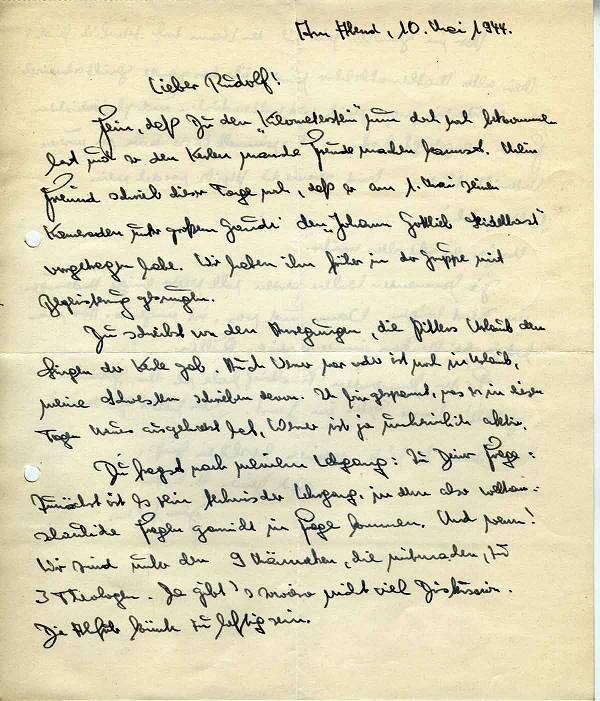 Am Abend, 10. Mai 1944.
Lieber Rudolf!
Fein, daß Du den „Kilometerstein" nun doch noch bekommen
hast und so den Kerlen manche Freude machen kannst. Mein
Freund schrieb dieser Tage noch, daß er am 1. Mai seinen
Kameraden unter großem Freude den „Johann Gottlieb Seidelbast"
vorgetragen habe. Wir haben ihn früher in der Gruppe mit
Begeisterung gesungen.
Du schreibst von den Anregungen, die Fritters Urlaub dem
Singen der Kerle gab. Auch Werner war oder ist noch in Urlaub,
meine Schwestern schrieben davon. Ich bin gespannt, was er in diesen
Tagen Neues ausgeheckt hat, Werner ist ja unheimlich aktiv.
Du fragst nach meinem Lehrgang: Zu Deiner Frage:
Zunächst ist es kein technischer Lehrgang, in dem also weltan-
schauliche Fragen garnicht in Frage kommen. Und wenn!
Wir sind unter den 9 Männeken, die mitmachen, zu
3 Theologen. Da gibt's sowieso nicht viel Diskussion.
Die Abfuhr könnte zu heftig sein.